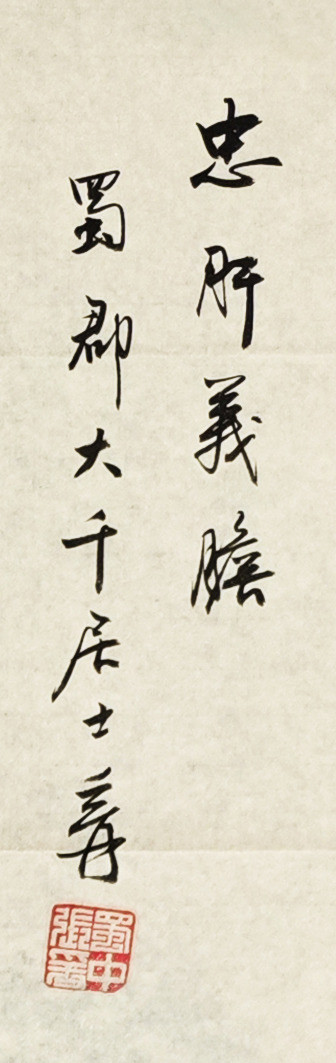 忠肝義膽
蜀郡大千居士爰
蜀中張爰